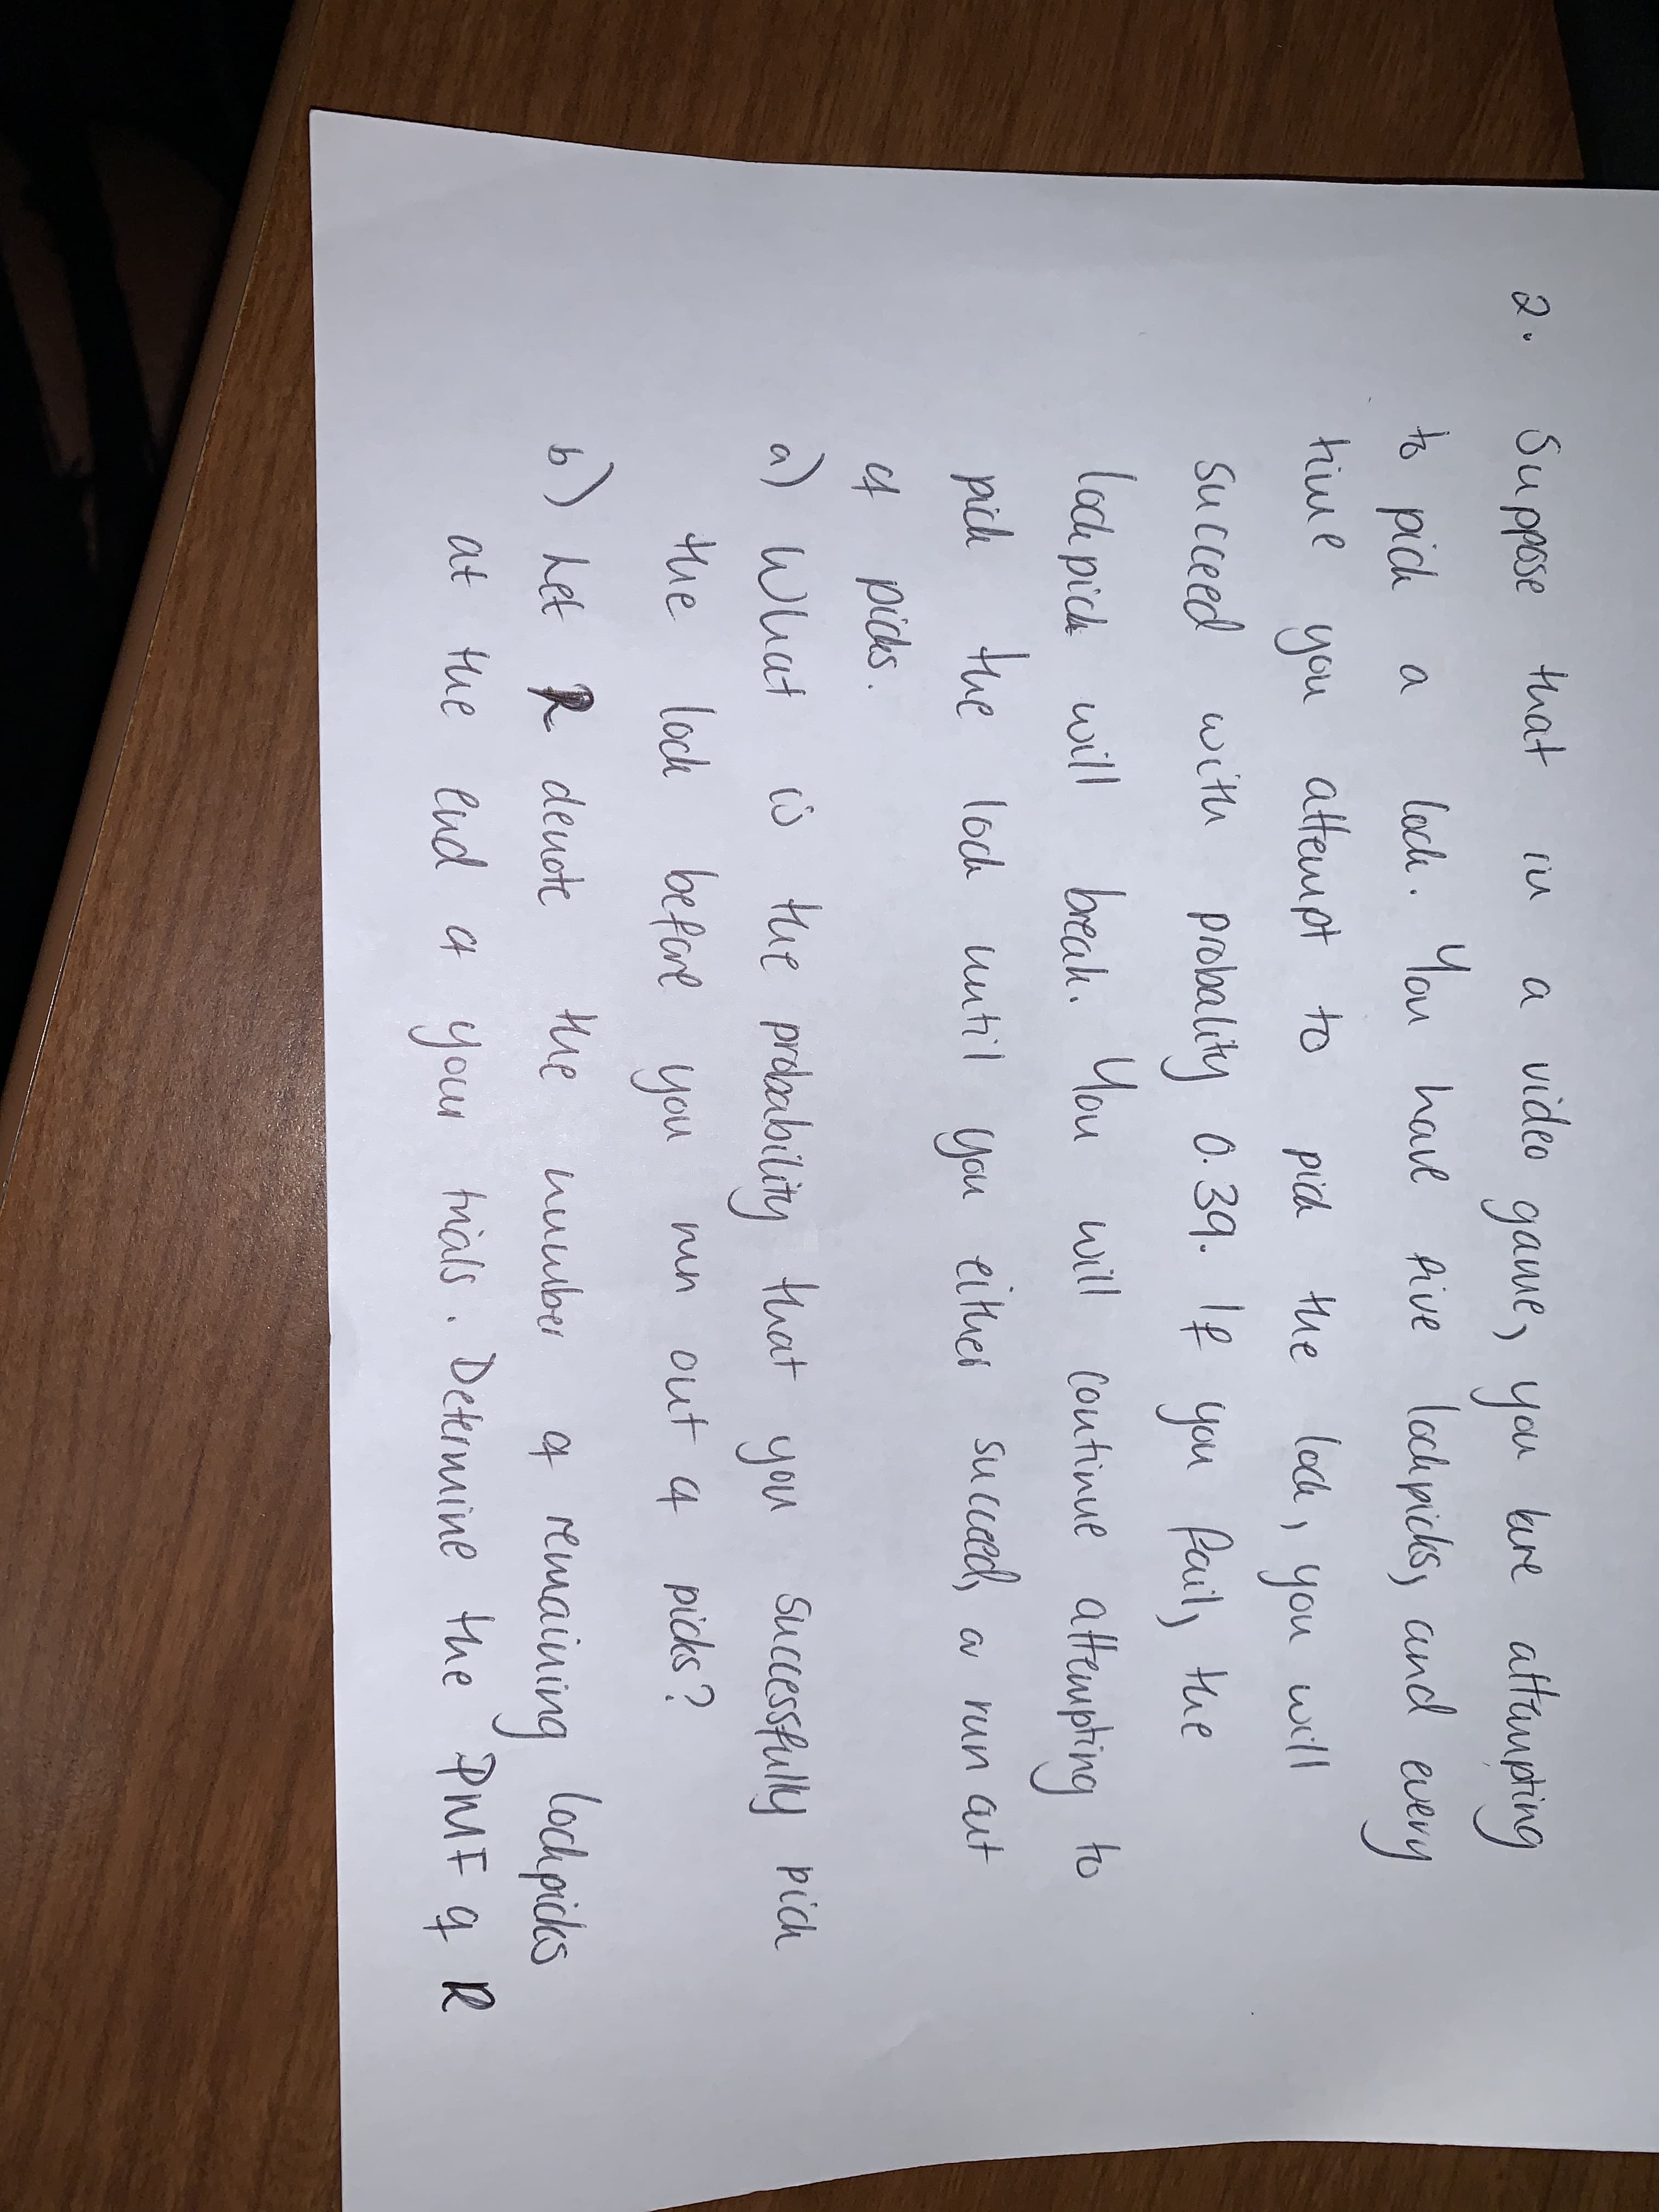 2. Suppose that in a video game, you are attempting
to pick a lock. You have five lockpicks, and every
time you attempt to pick the lock, you will
succeed with probality 0.39. If you fail, the
lockpick will break. You will continue attempting to
pick the lock until you either succeed, or run out
of picks.
a) What is the probability that you successfully pick
the lock before you run out of picks?
b) Let R denote the number of remaining lockpicks
at the end of your trials. Determine the PMF of R